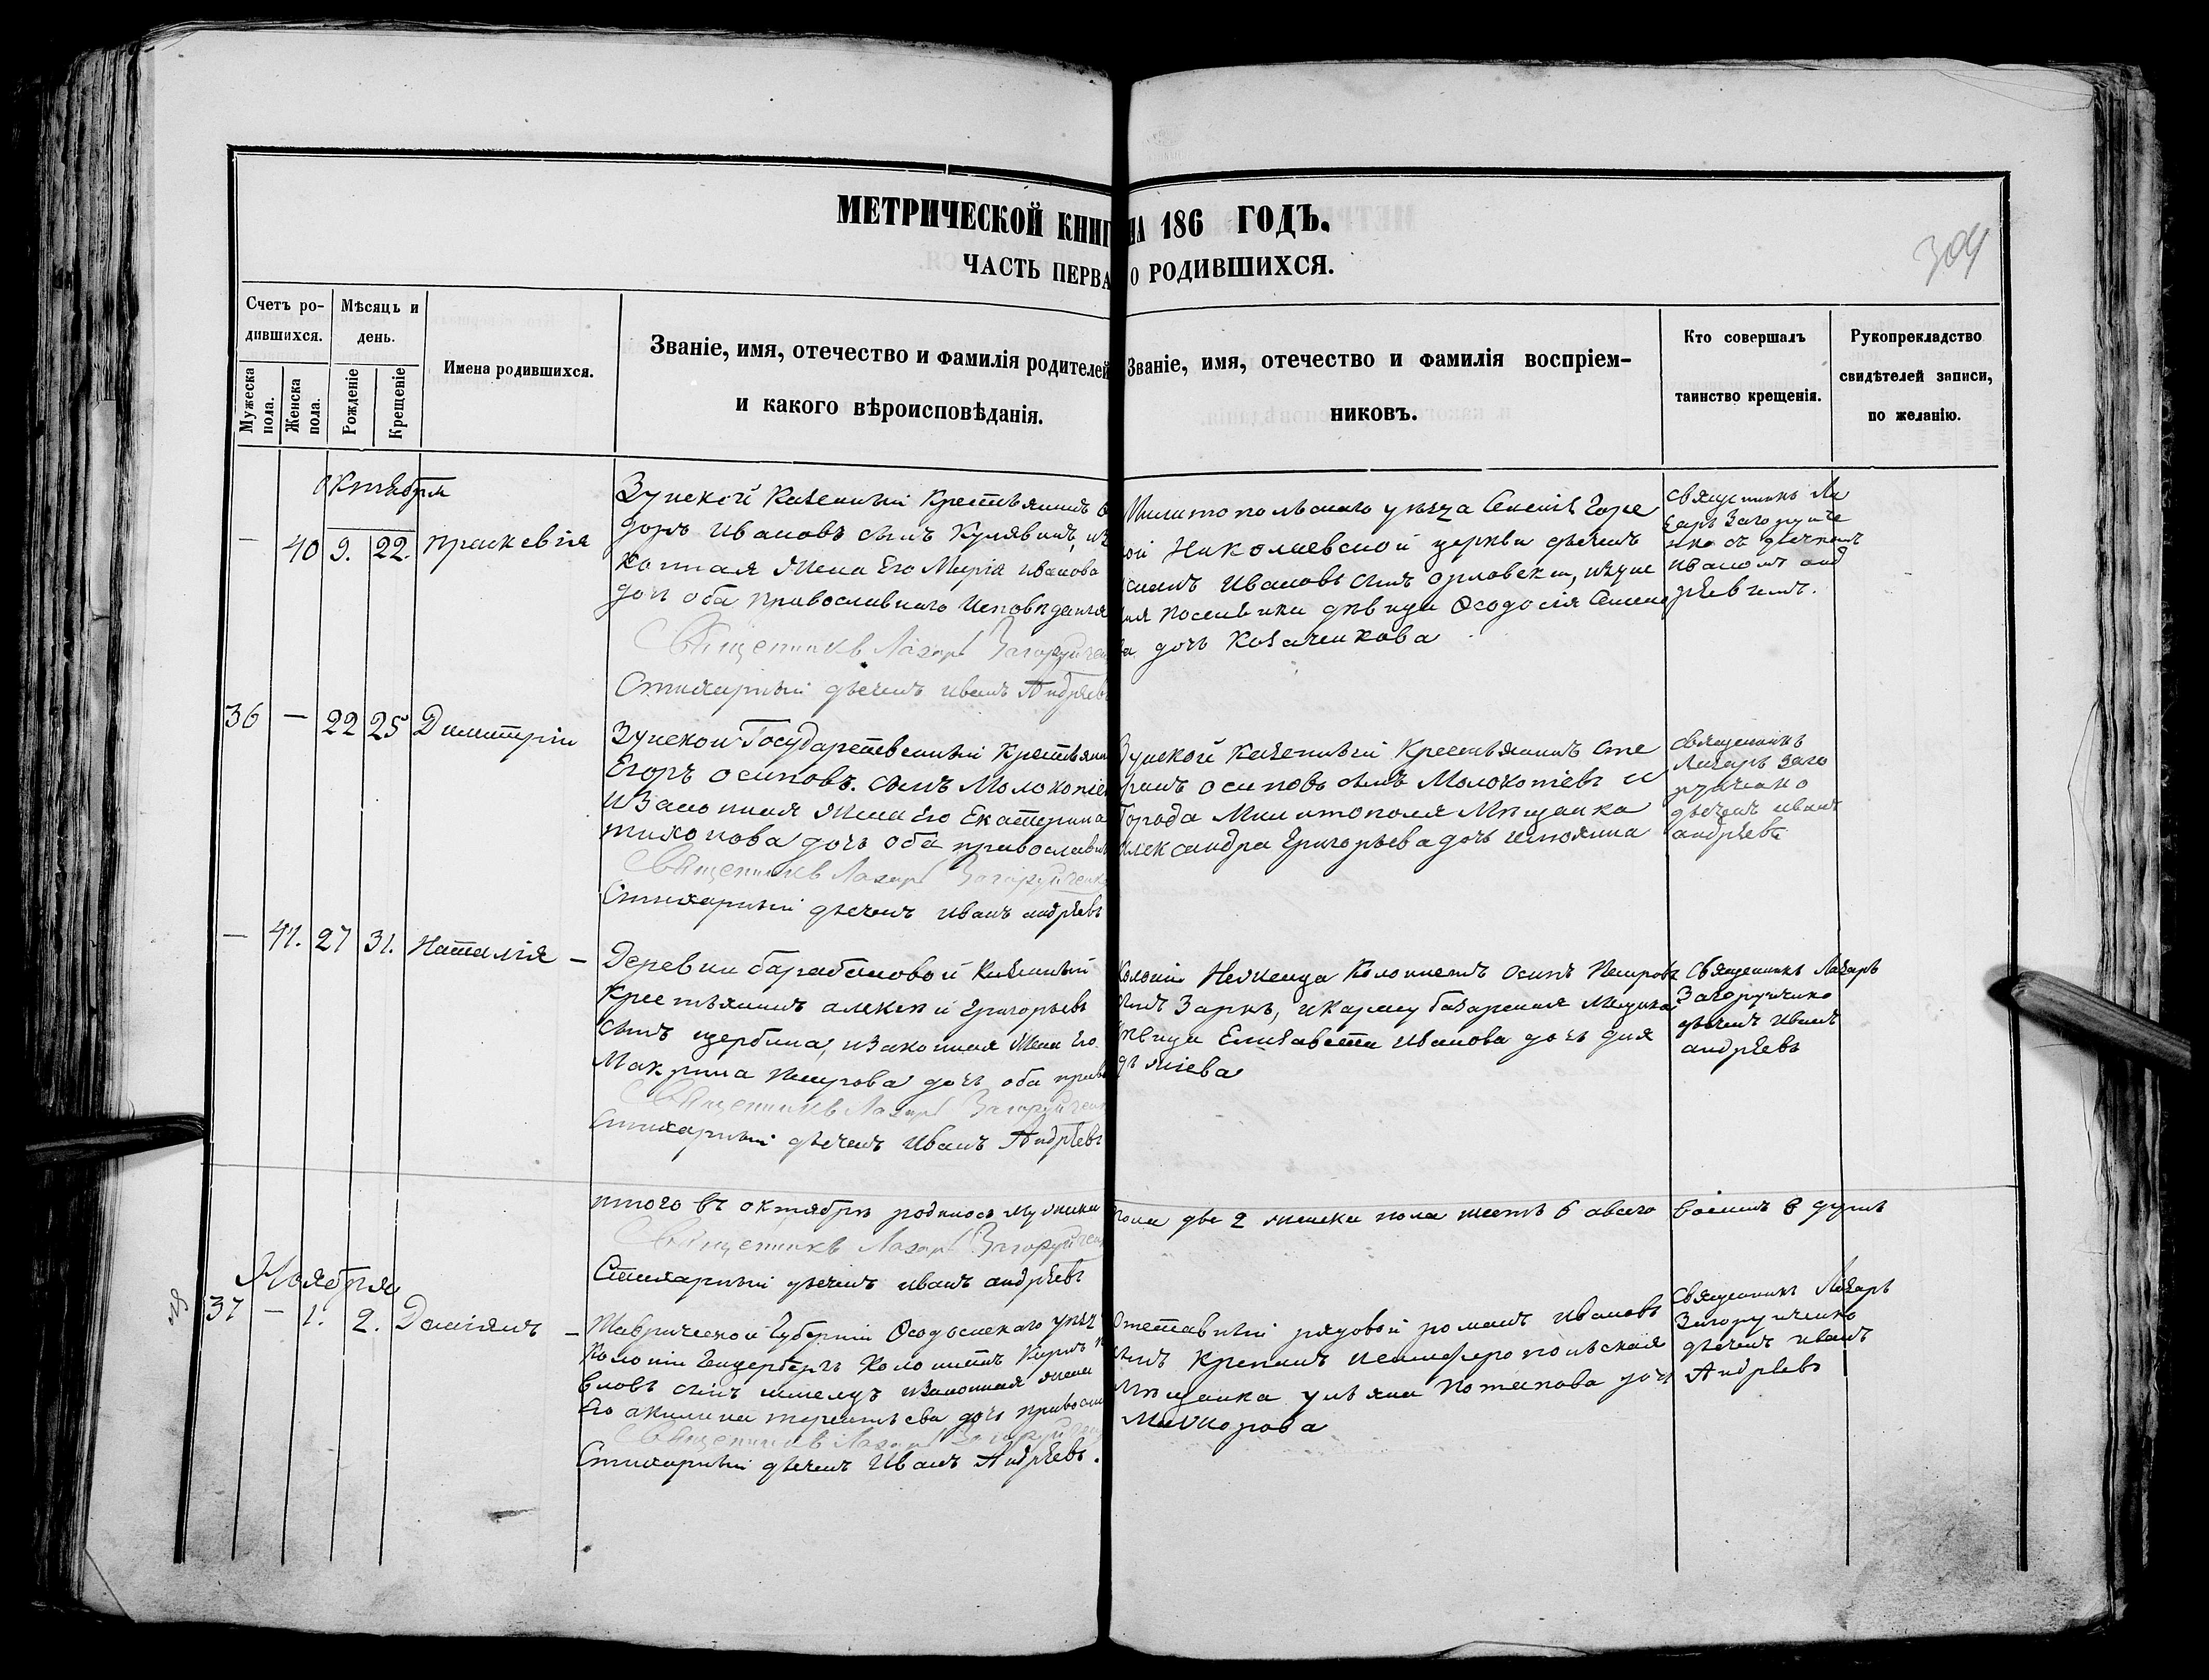 МЕТРИЧЕСКОЙ КНИГ НА 186 ГОДЪ.
ЧАСТЬ ПЕРВА О РОДИВШИХСЯ.
304
Счетъ родившихся.
Мужеска пола.
Женска пола.
Мѣсяцъ и день.
Рожденіе
Крещеніе
Имена родившихся.
Званіе, имя, отечество и фамилія родителей
и какого вѣроисповѣданія.
Званіе, имя, отечество и фамилія воспріем-
никовъ.
Кто совершалъ
таинство крещенія.
Рукоприкладство
свидѣтелей записи,
по желанію.
октября
— 40 9. 22. праскевія
Зуйской Казенный Крестьянинъ
доръ Ивановъ сынъ Кулявинъ,
конная жена Его Марія иванова
дочь оба православнаго исповеданія
Священникъ Лазарь Загоруйчен
Стихарный дьячекъ иванъ Андрѣев
Милитопольскаго уѣзда
Николаевской церкви дьячекъ
Ивановъ сынъ орловски,
девица Феодосія Семено
ва дочь Козаченкова
священникъ Ла
зарь Загоруйче
нко съ дьячкомъ
иваномъ анд
рѣевимъ.
36 — 22 25 Димитрій
Зуйской Государственный Крестьяни
Егоръ осиповъ. сынъ Молокотіе
и Законная жена Его Екатерина
тихонова дочь оба православн
Священникъ Лазарь Загоруйченк
Стихарный дьячекъ иванъ андрѣевъ
Зуйской Казенный Крестьянинъ Сте
осиповъ сынъ Молокотіевъ и
Города Милитополя Мѣщанка
Александра Григорьева дочь
священникъ
Лазарь Заго
руйченко
дьячекъ иванъ
андрѣевъ
— 41. 27 31. Наталія —
Деревни барабановой Казенный
Крестьянинъ алексѣй Григорьевъ
сынъ щербина, и Законная жена Его
Макрина петрова дочь оба прав
Священникъ Лазарь Загоруйчен
Стихарный дьячекъ иванъ Андрѣевъ
Колоніи Нейзаца Колонистъ осипъ петровъ
сынъ Заркъ, и карасубазарская Мещанка
девица Елизавета иванова дочь
священникъ Лазарь
Загоруйченко
дьячекъ иванъ
андрѣевъ
итого въ октябрѣ родилось мужеска пола две 2 женска пола шесть 6 авсего восемь 8 душъ
Священникъ Лазарь Загоруйчен
Стихарный дьячекъ иванъ андрѣевъ
Ноября
37 — 1. 2. Даміянъ —
Таврической Губерніи Феодосискаго уѣз
Колоніи Гендербергъ Колонистъ
вловъ сынъ и Законная жена
Его акилина терентьева дочь правосл
Священникъ Лазарь Загоруйчен
Стихарный дьячекъ иванъ Андрѣевъ.
Отставный рядовой романъ ивановъ
сынъ симферопольская
Мѣщанка ульяна потапова дочь
священникъ Лазарь
Загоруйченко
дьячекъ иванъ
Андрѣевъ